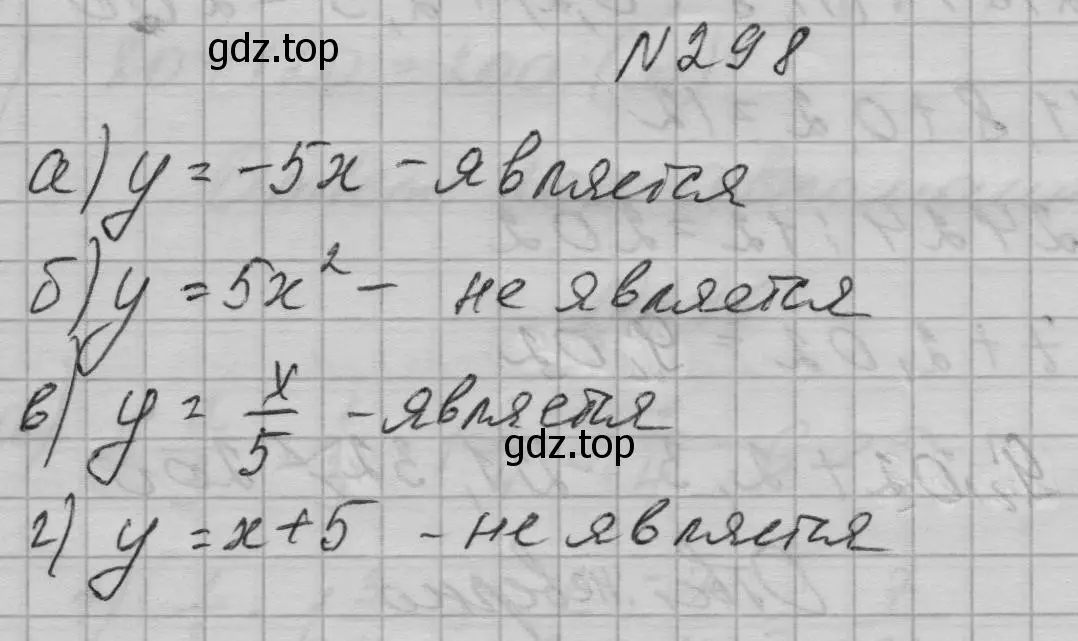 gdz.top
N 298
а) y = -5x - является
б) y = 5x² - не является
в) y = x/5 - является
gdz.top
г) y = x + 5 - не является